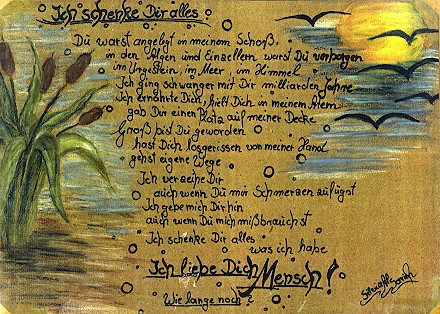 Ich schenke Dir alles
Du warst angelegt in meinem Schoß,
in den Algen und Einzellern warst Du verborgen
im Urgestein, im Meer, im Himmel
Ich ging schwanger mit Dir milliarden Jahre
Ich ernährte Dich, hielt Dich in meinem Atem
gab Dir einen Platz auf meiner Decke
Groß bist Du geworden
hast Dich losgerissen von meiner Hand
gehst eigene Wege
Ich verzeihe Dir
auch wenn Du mir Schmerzen zufügst
Ich gebe mich Dir hin
auch wenn Du mich mißbrauchst
Ich schenke Dir alles
was ich habe
Ich liebe Dich Mensch!
Wie lange noch?